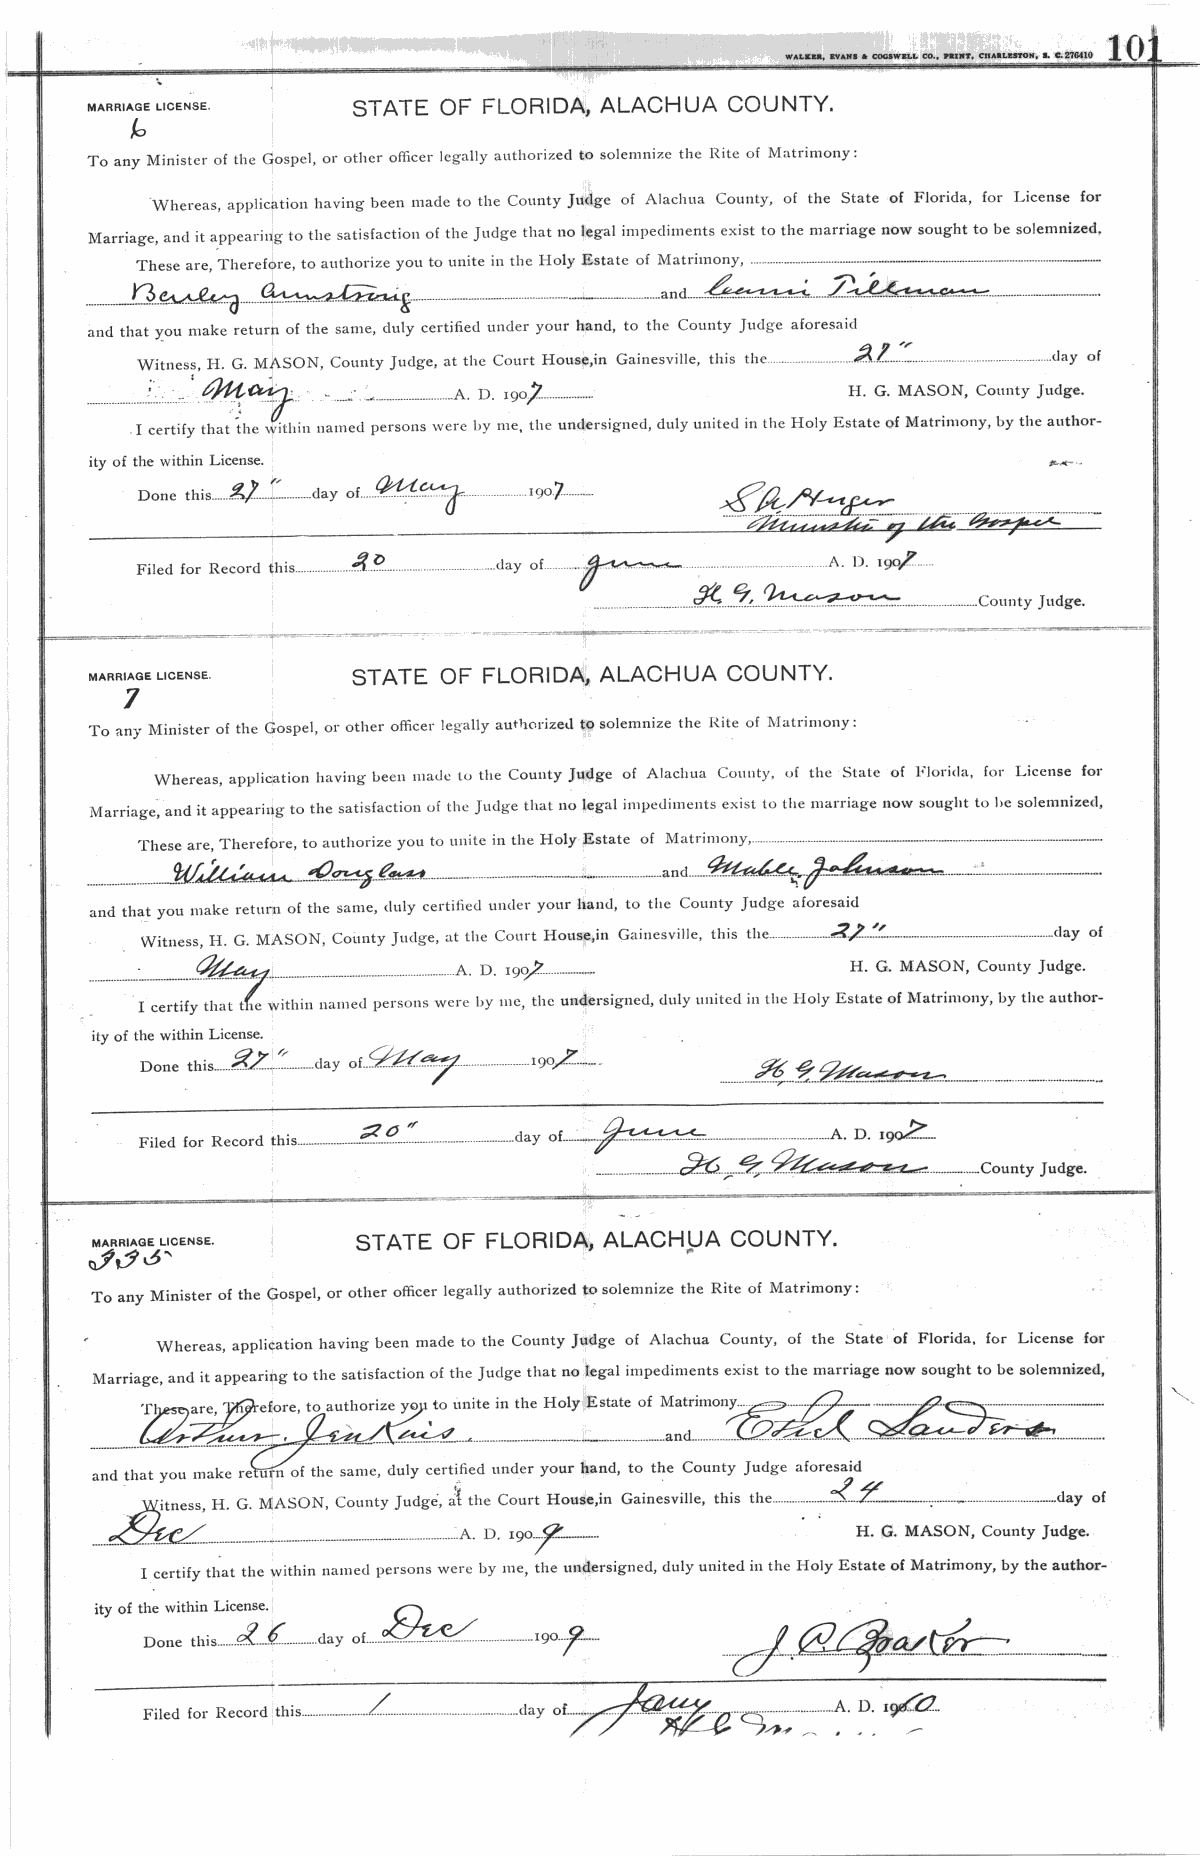 WALKER, EVANS & COGSWELL CO., PRINT, CHARLESTON, S. C. 276410 101
MARRIAGE LICENSE. STATE OF FLORIDA, ALACHUA COUNTY.
6
To any Minister of the Gospel, or other officer legally authorized to solemnize the Rite of Matrimony:
Whereas, application having been made to the County Judge of Alachua County, of the State of Florida, for License for
Marriage, and it appearing to the satisfaction of the Judge that no legal impediments exist to the marriage now sought to be solemnized,
These are, Therefore, to authorize you to unite in the Holy Estate of Matrimony,
Armstrong and Tillman
and that you make return of the same, duly certified under your hand, to the County Judge aforesaid
Witness, H. G. MASON, County Judge, at the Court House, in Gainesville, this the 27" day of
May A. D. 1907 H. G. MASON, County Judge.
I certify that the within named persons were by me, the undersigned, duly united in the Holy Estate of Matrimony, by the author-
ity of the within License.
Done this 27" day of May 1907 Huger
Minister of the Gospel
Filed for Record this 20 day of June A. D. 1907
H. G. Mason County Judge.
MARRIAGE LICENSE. STATE OF FLORIDA, ALACHUA COUNTY.
7
To any Minister of the Gospel, or other officer legally authorized to solemnize the Rite of Matrimony:
Whereas, application having been made to the County Judge of Alachua County, of the State of Florida, for License for
Marriage, and it appearing to the satisfaction of the Judge that no legal impediments exist to the marriage now sought to be solemnized,
These are, Therefore, to authorize you to unite in the Holy Estate of Matrimony,
William Douglass and Mable Johnson
and that you make return of the same, duly certified under your hand, to the County Judge aforesaid
Witness, H. G. MASON, County Judge, at the Court House, in Gainesville, this the 27" day of
May A. D. 1907 H. G. MASON, County Judge.
I certify that the within named persons were by me, the undersigned, duly united in the Holy Estate of Matrimony, by the author-
ity of the within License.
Done this 27" day of May 1907 H. G. Mason
Filed for Record this 20" day of June A. D. 1907
H. G. Mason County Judge.
MARRIAGE LICENSE. STATE OF FLORIDA, ALACHUA COUNTY.
335
To any Minister of the Gospel, or other officer legally authorized to solemnize the Rite of Matrimony:
Whereas, application having been made to the County Judge of Alachua County, of the State of Florida, for License for
Marriage, and it appearing to the satisfaction of the Judge that no legal impediments exist to the marriage now sought to be solemnized,
These are, Therefore, to authorize you to unite in the Holy Estate of Matrimony
Arthur Jenkins. and Ethel Sanders
and that you make return of the same, duly certified under your hand, to the County Judge aforesaid
Witness, H. G. MASON, County Judge, at the Court House, in Gainesville, this the 24 day of
Dec A. D. 1909 H. G. MASON, County Judge.
I certify that the within named persons were by me, the undersigned, duly united in the Holy Estate of Matrimony, by the author-
ity of the within License.
Done this 26 day of Dec 1909 J. C.
Filed for Record this 1 day of Jany A. D. 1910